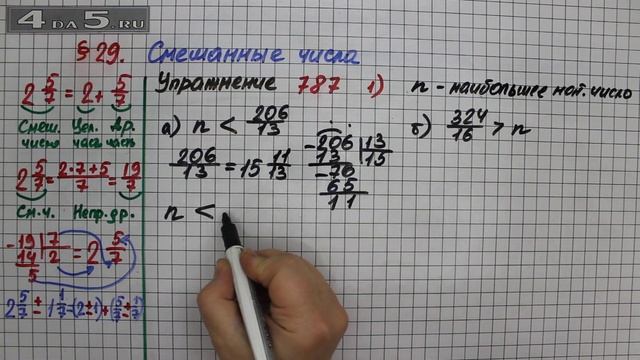 4DA5.RU
§ 29. Смешанные числа
2 5/7 = 2 + 5/7
Смеш. Цел. Др.
число часть часть
2 5/7 = 2·7+5/7 = 19/7
См.ч. Непр.др.
-19 | 7
14 | 2 = 2 5/7
5
2 5/7 ± 1 1/7 = (2±1) + (5/7 ± 1/7)
Упражнение 787 1) n - наибольшее нат. число
а) n < 206/13
206/13 = 15 11/13
-206 | 13
13 | 15
-76
65
11
n <
б) 324/16 > n